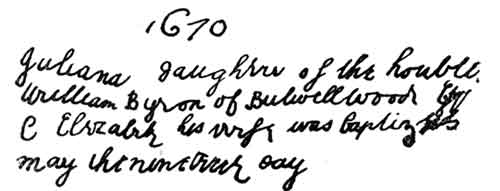 1670
Juliana daughter of the honble.
William Byron of Bulwell Wood Esq
& Elizabeth his wife was baptized
may the nineteenth day